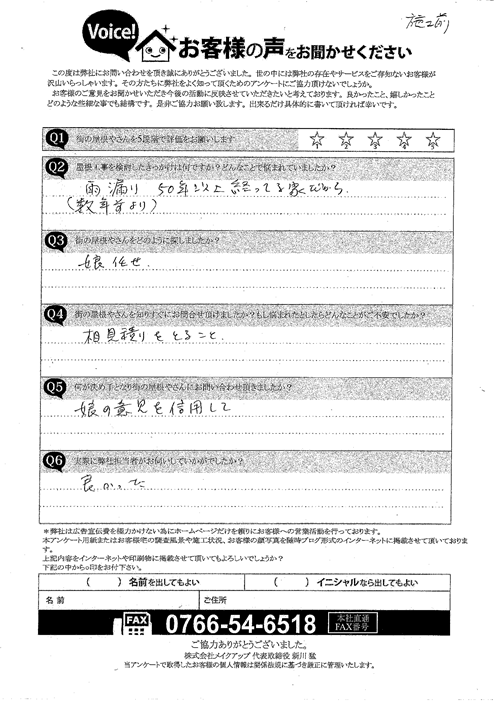 施工前
Voice!
お客様の声をお聞かせください
この度は弊社にお問い合わせを頂き誠にありがとうございます。世の中には弊社の存在やサービスをご存知ないお客様が
沢山いらっしゃいます。その方たちに弊社をよく知って頂くためのアンケートにご協力頂けないでしょうか。
お客様のご意見をお聞かせいただき今後の活動に反映させていただきたいと考えております。良かったこと、嬉しかったこと
どのような些細な事でも結構です。是非ご協力お願い致します。出来るだけ具体的に書いて頂ければ幸いです。
Q1 街の屋根やさんを5段階で評価をお願いします ☆ ☆ ☆ ☆ ☆
Q2 屋根工事を検討したきっかけは何ですか?どんなことで悩まれていましたか?
雨漏り 50年以上経ってる家だから
(数年前より)
Q3 街の屋根やさんをどのように探しましたか?
娘任せ.
Q4 街の屋根やさんを知りすぐにお問合せ頂けましたか?もし悩まれたとしたらどんなことがご不安でしたか?
相見積りをとること.
Q5 何が決め手となり街の屋根やさんにお問い合わせ頂きましたか?
娘の意見を信用して
Q6 実際に弊社担当者がお伺いしていかがでしたか?
良かった
*弊社は広告宣伝費を極力かけない為にホームページだけを頼りにお客様への営業活動を行っております。
本アンケート用紙またはお客様宅の調査風景や施工状況、お客様の顔写真を随時ブログ形式のインターネットに掲載させて頂いておりま
す。
上記内容をインターネットや印刷物に掲載させて頂いてもよろしいでしょうか?
下記の中から○印をお付下さい。
( )名前を出してもよい ( )イニシャルなら出してもよい
名前 ご住所
FAX 0766-54-6518 本社直通 FAX番号
ご協力ありがとうございました。
株式会社メイクアップ 代表取締役 前川 猛
当アンケートで取得したお客様の個人情報は関係法規に基づき厳正に管理いたします。